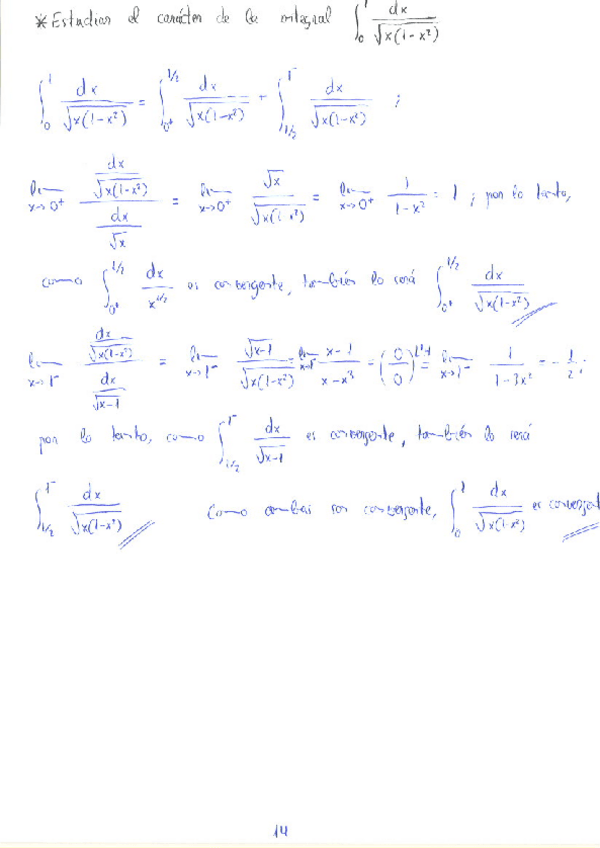 *Estudiar el carácter de la integral ∫₀¹ dx/√(x(1-x²))
∫₀¹ dx/√(x(1-x²)) = ∫_{0⁺}^{1/2} dx/√(x(1-x²)) + ∫_{1/2}^{1⁻} dx/√(x(1-x²)) ;
lim_{x→0⁺} (dx/√(x(1-x²)))/(dx/√x) = lim_{x→0⁺} √x/√(x(1-x²)) = lim_{x→0⁺} 1/(1-x²) = 1 ; por lo tanto,
como ∫_{0⁺}^{1/2} dx/x^{1/2} es convergente, también lo será ∫_{0⁺}^{1/2} dx/√(x(1-x²))
lim_{x→1⁻} (dx/√(x(1-x²)))/(dx/√(x-1)) = lim_{x→1⁻} √(x-1)/√(x(1-x²)) = lim_{x→1⁻} (x-1)/(x-x³) = (0/0) L'H = lim_{x→1⁻} 1/(1-3x²) = -1/2;
por lo tanto, como ∫_{1/2}^{1⁻} dx/√(x-1) es convergente, también lo será
∫_{1/2}^{1⁻} dx/√(x(1-x²)) Como ambas son convergente, ∫₀¹ dx/√(x(1-x²)) es convergent
14